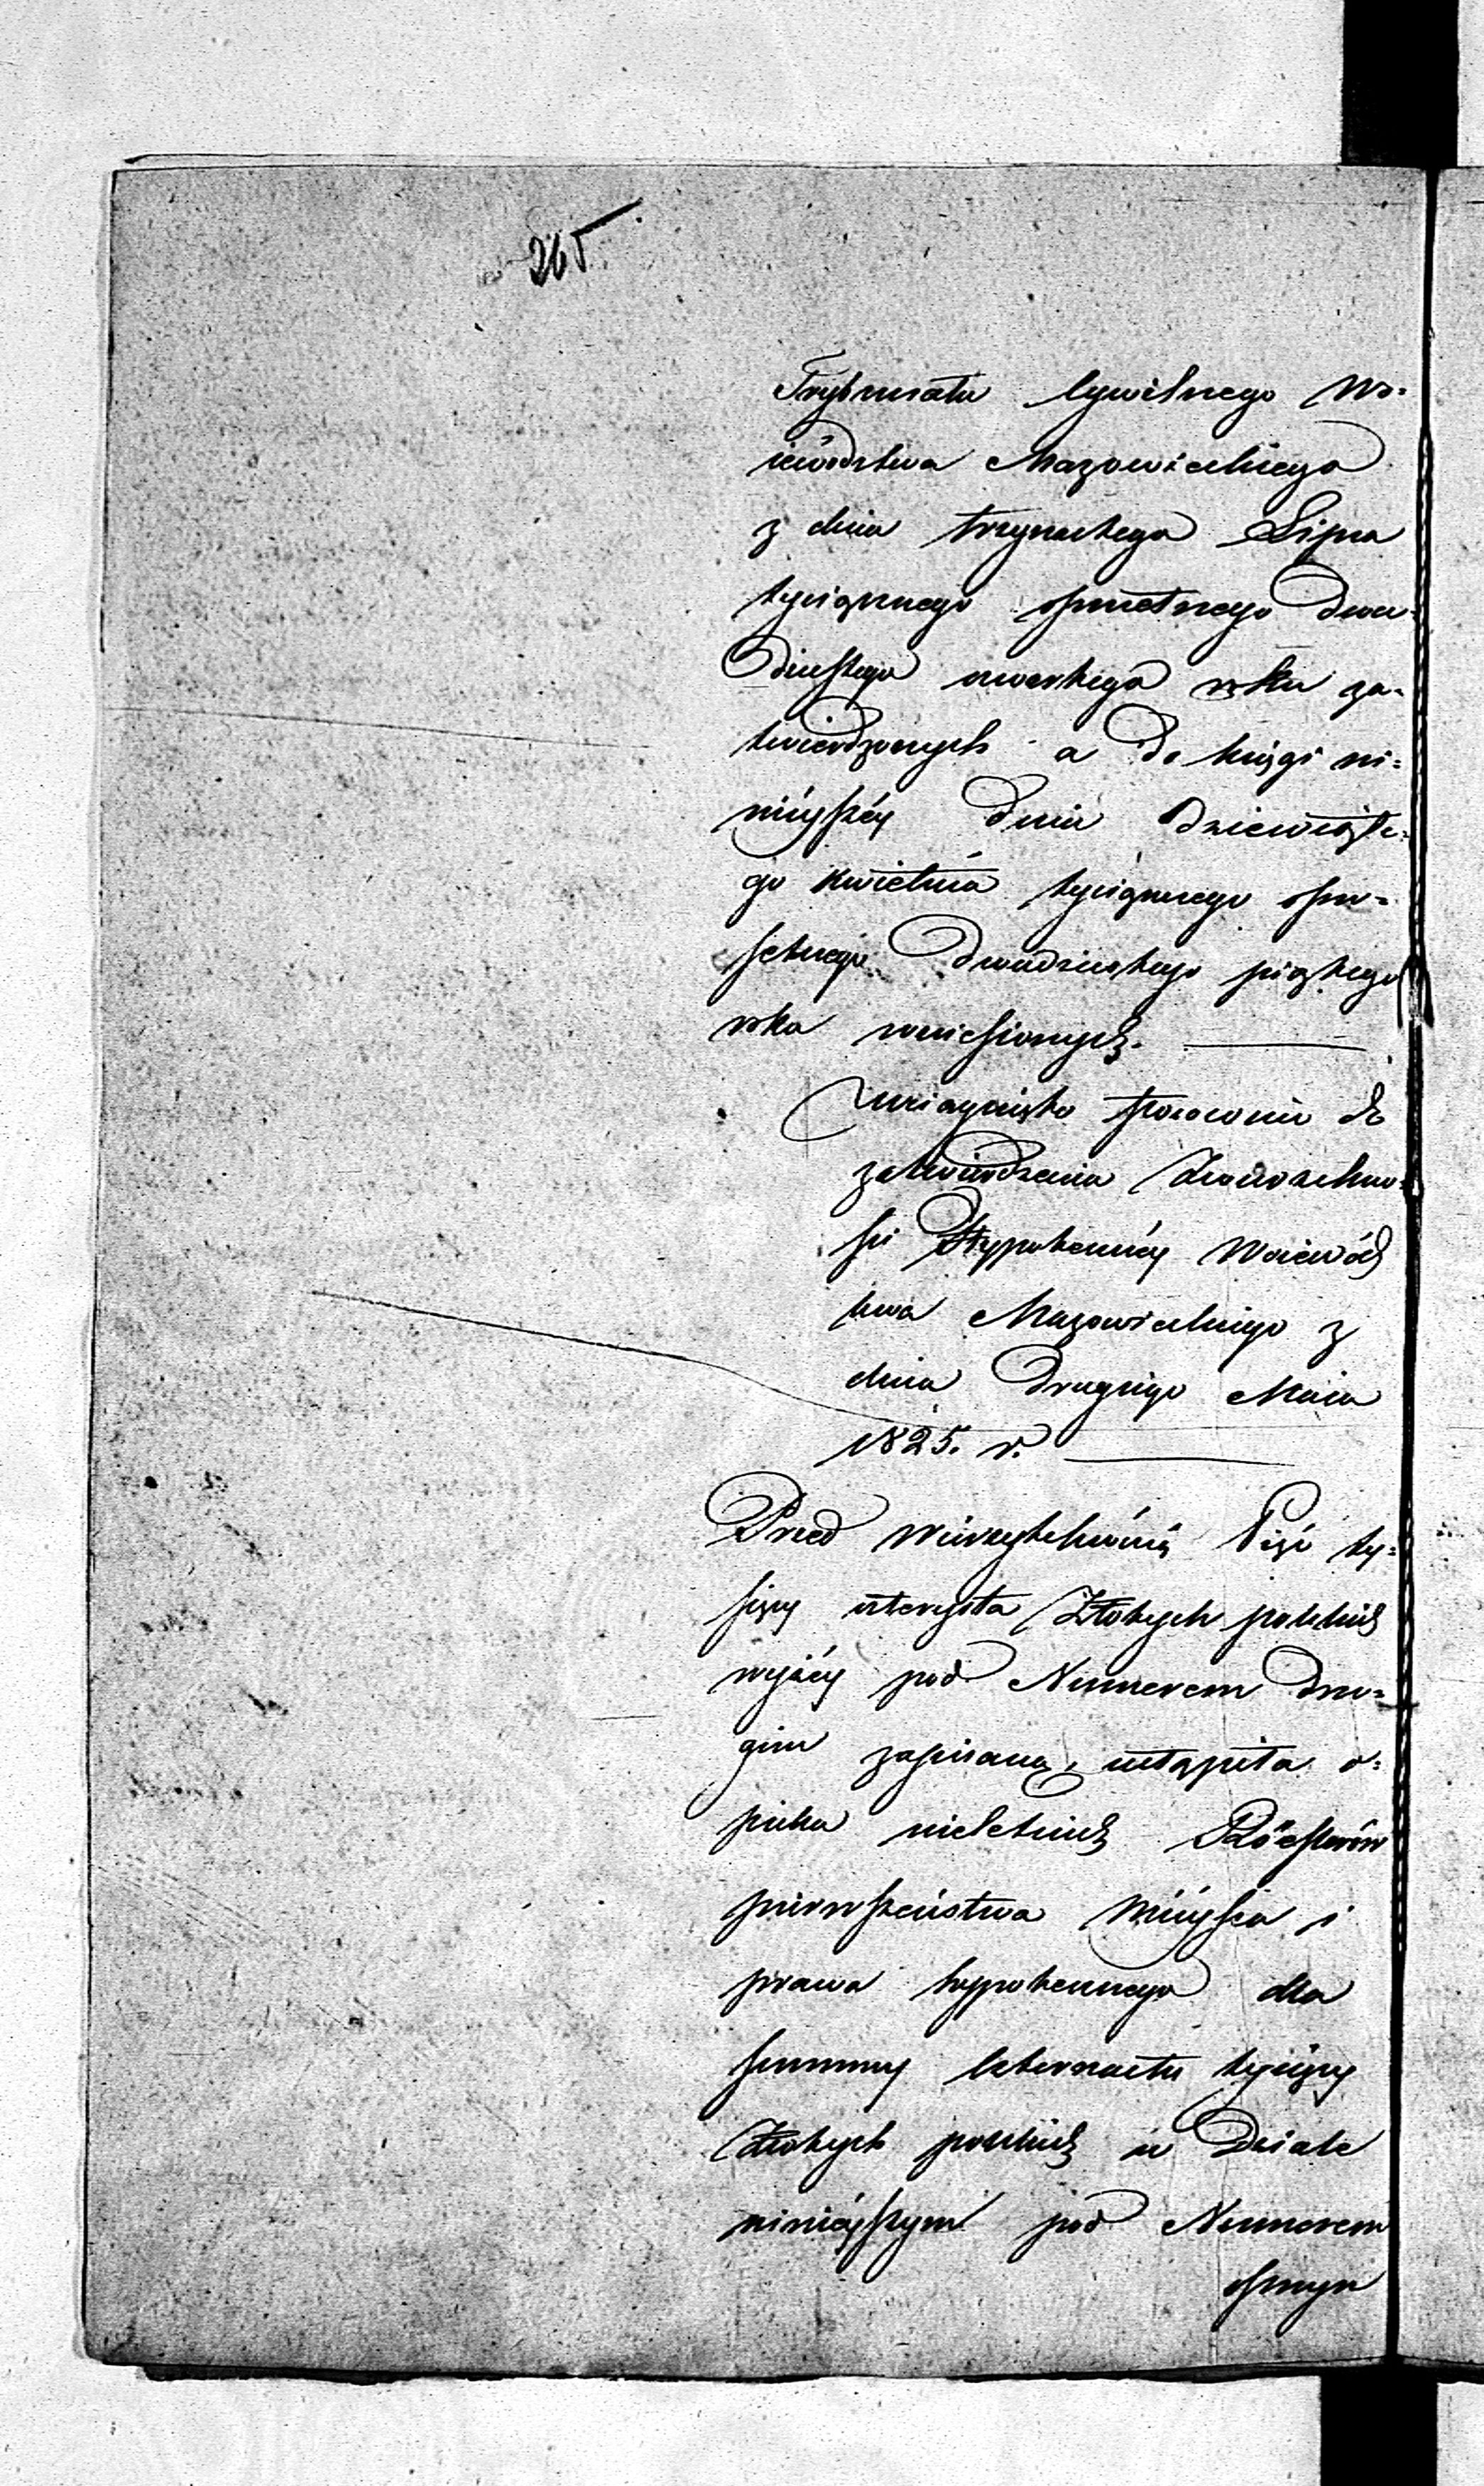 265
Trybunału Cywilnego Wo=
iewództwa Mazowieckiego
z dnia trzynastego Lipca
tysiącznego ośmsetnego dwu=
dziestego czwartego roku za=
twierdzonych a do księgi ni=
nieyszéy dnia dziewiąte=
go kwietnia tysiącznego ośm=
setnego dwudziestego piątego
roku wniesionych.
Zaciągnięto stosownie do
zatwierdzenia Zwierzchno=
ści Hypoteczney Wojewódz
twa Mazowieckiego z
dnia drugiego Maia
1825. r.
Przed wierzytelnością Pięć ty=
sięcy czterysta Złotych polskich
wyżéy pod Numerem dru=
gim zapisaną, ustąpiła o=
pieka nieletnich
pierwszeństwa mieysca i
prawa hypotecznego dla
summy czternastu tysięcy
Złotych polskich w Dziale
ninieyszym pod Numerem
ósmym